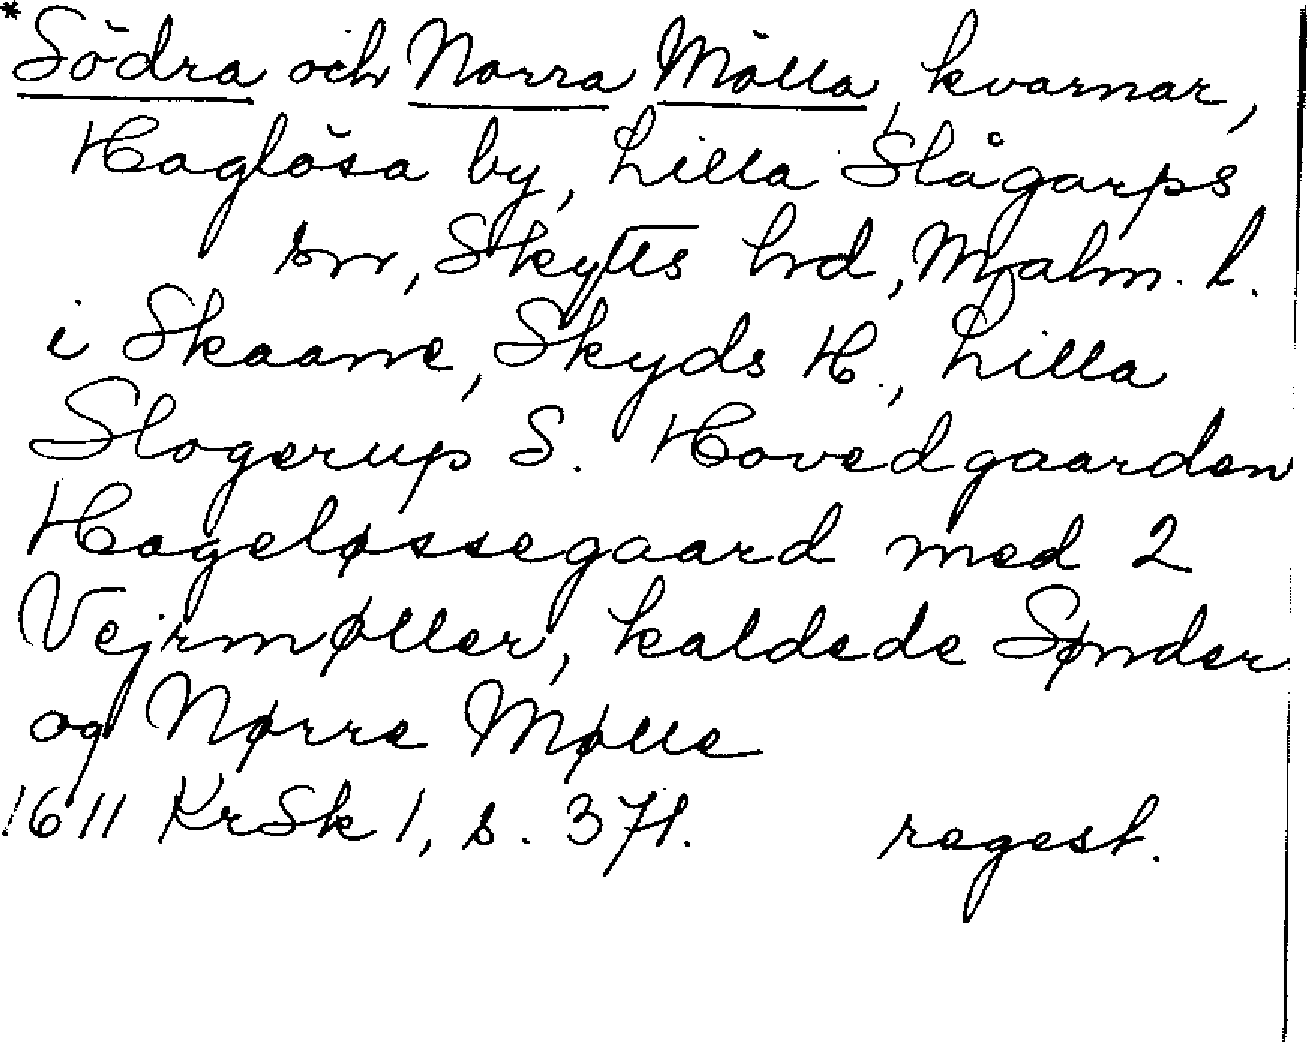 *Södra och Norra Mölla, kvarnar,
Haglösa by, Lilla Slågarps
sn, Skytts hd, Malm. l.
i Skaane, Skyds H., Lilla
Slogerup S. Hovedgaarden
Hageløssegaard med 2
Vejrmøller, kaldede Sønder
og Nørre Mølle
1611 KrSk 1, s. 371. regest.